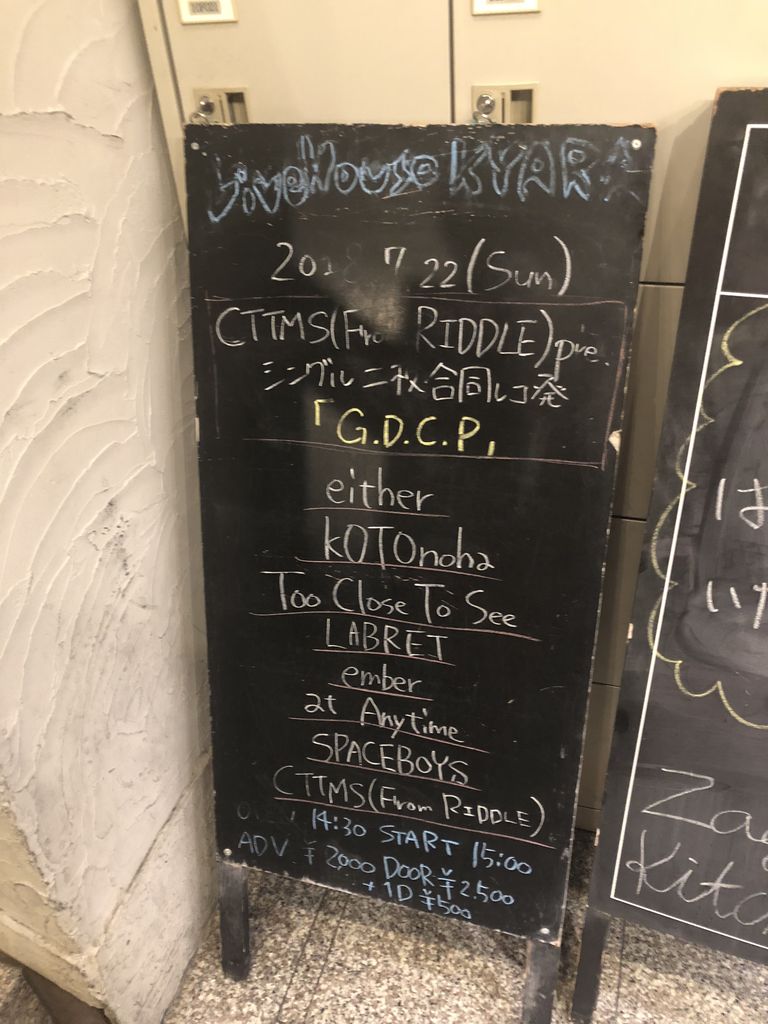 LiveHouse KYARA
2018 7 22 (Sun)
CTTMS(From RIDDLE)pre.
シングル二枚合同レコ発
「G.D.C.P」
either
KOTOnoha
Too Close To See
LABRET
ember
at Anytime
SPACEBOYS
CTTMS(From RIDDLE)
OPEN 14:30 START 15:00
ADV ¥2000 DOOR ¥2.500
+1D ¥500
は
いけ
Kitc